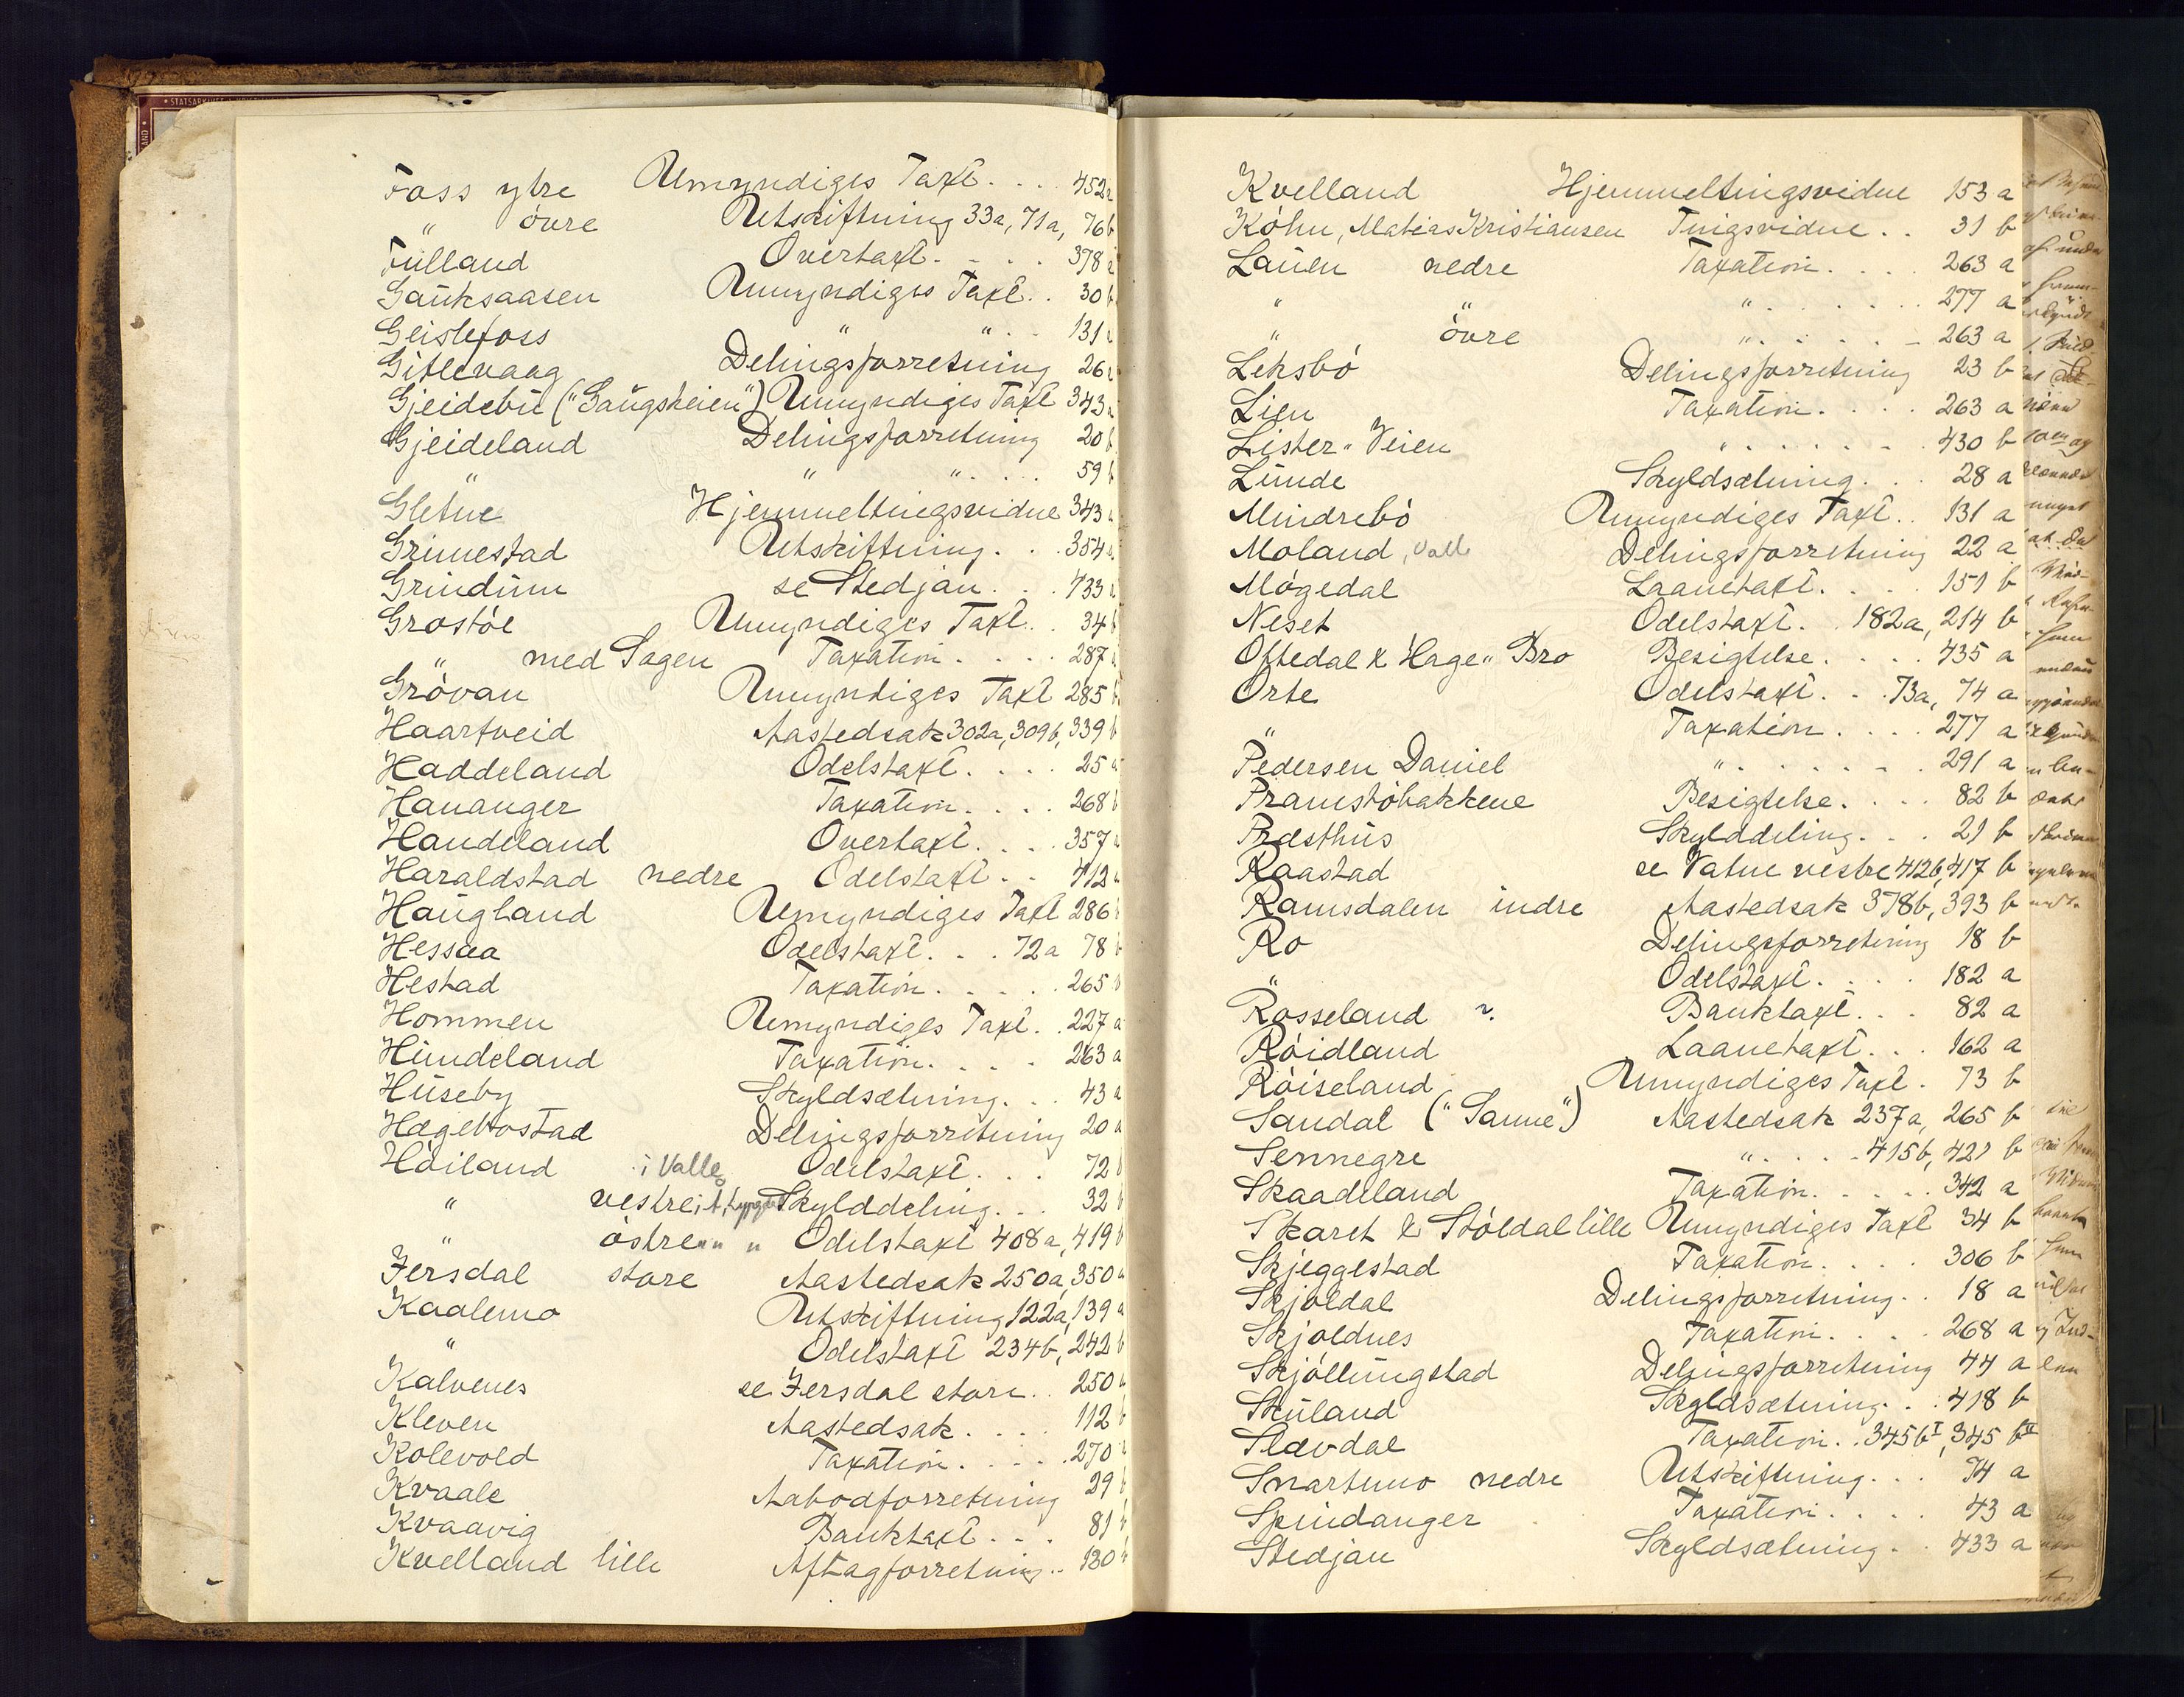 Foss ytre Umyndiges Taxt. . . 452
" övre Utskiftning 33a, 71a, 76b
Fülland Overtaxt. . . . 378
Gaüksaasen Umyndiges Taxt. . 30
Geislefoss " " . . 131
Gitlevaag Delingsforretning 26
Gjeidebü ("Gaügsheien") Umyndiges Taxt 343
Gjeideland Delingsforretning 20
" " " . . . . 59
Gletne Hjemmeltingsvidne 343
Grimestad Utskiftning. . . 354
Grindüm se Stedjan. . . 433
Grostöl Umyndiges Taxt. . 34
" med Sagen Taxation. . . . 287
Grövan Umyndiges Taxt 285
Haartveid Aastedsak 302a, 309b, 339
Haddeland Odelstaxt. . . . 25
Hananger Taxation. . . . 268
Handeland Overtaxt. . . . 357
Haraldstad nedre Odelstaxt. . . 412
Haügland Umyndiges Taxt 286
Hessaa Odelstaxt. . . 72a 78
Hestad Taxation. . . . . 265
Hommen Umyndiges Taxt. . 227 a
Hündeland Taxation. . . . 263 a
Hüseby Skyldsætning. . . 43 a
Hægebostad Delingsforretning 20 a
Höiland i Valle Odelstaxt. . . 72
" vestre, i Skylddeling. . . 32
" östre " " Odelstaxt 408a, 419
Jersdal store Aastedsak 250a, 350
Kaalemo Utskiftning 122a, 139 a
" Odelstaxt 234b, 242
Kalvenes se Jersdal store. . 250
Kleven Aastedsak. . . . 112
Kolevold Taxation. . . . . 270
Kvaale Aabodforretning 29
Kvaavig Banktaxt. . . 81
Kvelland lille Aftagforretning. . 130
Kvelland Hjemmeltingsvidne 153 a
Köhn, Matias Kristiansen Tingsvidne. . 31 b
Laüen nedre Taxation. . . . 263 a
" " . . . . . . 277 a
" övre " . . . . . 263 a
Leksbö Delingsforretning 23 b
Lien Taxation. . . . 263 a
Lister-Veien " . . . . . . 430 b
Lünde Skyldsætning. . . 28 a
Mindrebö Umyndiges Taxt. . 131 a
Moland, Valle Delingsforretning 22 a
Mögedal Laanetaxt. . . . 151 b
Neset Odelstaxt. . 182a, 214 b
Oftedal & "Hage" Bro Besigtelse. . . . 435 a
Orte Odelstaxt. . . 73a, 74 a
" Taxation. . . . 277 a
Pedersen Daniel " . . . . . . 291 a
Pramstöbakkene Besigtelse. . . . 82 b
Præsthüs Skylddeling. . . 21 b
Raastad se Vatne vestre 412b, 417 b
Ramsdalen indre Aastedsak 378b, 393 b
Ro Delingsforretning 18 b
" Odelstaxt. . . . 182 a
Rosseland ?. Banktaxt. . . 82 a
Röidland Laanetaxt. . . 162 a
Röiseland Umyndiges Taxt. 73 b
Sandal ("Sanne") Aastedsak 237a, 265 b
Sennegre " . . . . . 415b, 421 b
Skaadeland Taxation. . . . . 342 a
Skaret & Stöldal lille Umyndiges Taxt 34 b
Skjeggestad Taxation. . . . 306 b
Skjoldal Delingsforretning. . 18 a
Skjoldnes Taxation. . . . 268 a
Skjöllingstad Delingsforretning 44 a
Sküland Skyldsætning. . . 418 b
Slævdal Taxation. . 345 b I, 345 b II
Snartemo nedre Utskiftning. . . 74 a
Spindanger Taxation. . . . 43 a
Stedjan Skyldsætning. . 433 a